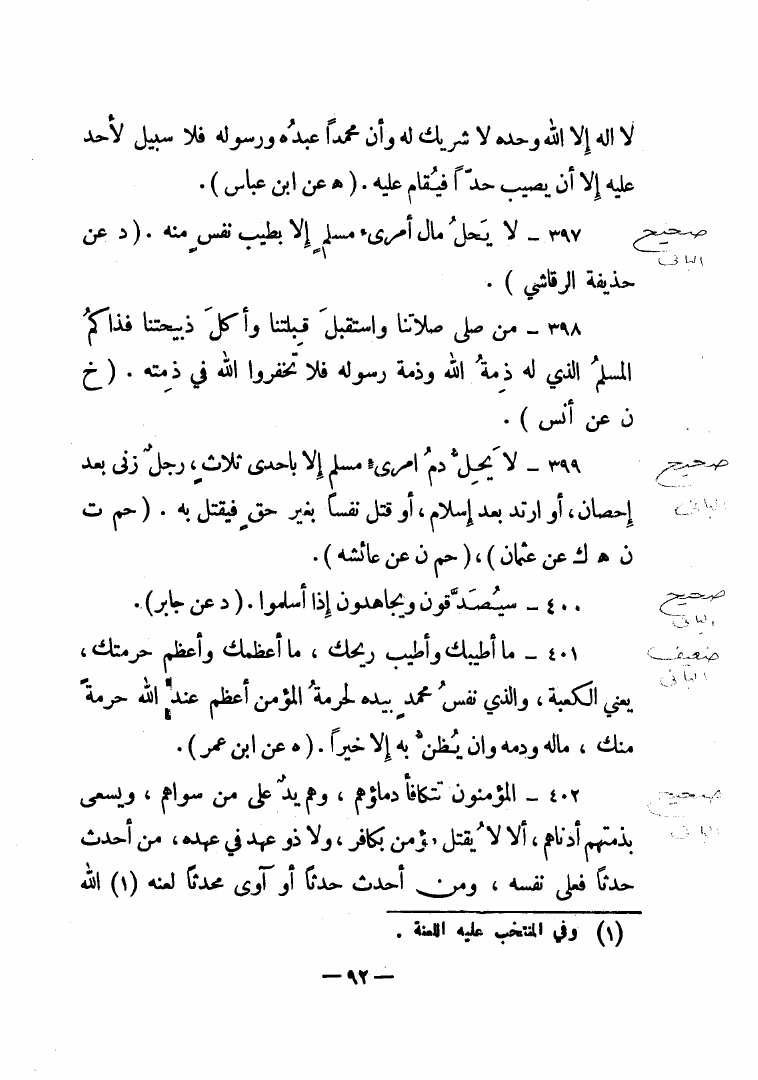 لا اله إلا الله وحده لا شريك له وأن محمداً عبدُه ورسوله فلا سبيل لأحد
عليه إلا أن يصيب حدّاً فيُقام عليه . ( ه عن ابن عباس ) .
٣٩٧ – لا يَحلُ مال أمرىء مسلمٍ إلا بطيب نفسٍ منه . ( د عن
صحيح
البانى
حذيفة الرقاشي ) .
٣٩٨ – من صلى صلاتنا واستقبلَ قِبلتنا وأكلَ ذبيحتنا فذاكمُ
المسلمُ الذي له ذِمةُ الله وذمة رسوله فلا تُخفروا الله في ذمِته . ( خ
ن عن أنس ) .
٣٩٩ – لا يَحِلُّ دمُ امرىء مسلم إلا باحدى ثلاثٍ ، رجلٌ زنى بعد
صحيح
البانى
إحصان ، أو ارتد بعد إسلام ، أو قتل نفساً بغير حقٍ فيقتل به . ( حم ت
ن ه ك عن عثمان ) ، ( حم ن عن عائشه ) .
٤٠٠ – سيُصَدَّقون ويجاهدون إذا أسلموا . ( د عن جابر ) .
صحيح
البانى
٤٠١ – ما أطيبك وأطيب ريحك ، ما أعظمك وأعظم حرمتك ،
ضعيف
البانى
يعني الكعبة ، والذي نفسُ محمدٍ بيده لحرمةُ المؤمن أعظم عند الله حرمةً
منك ، ماله ودمه وان يُظنّ به إلا خيراً . ( ه عن ابن عمر ) .
٤٠٢ – المؤمنون تتكافأ دماؤهم ، وهم يدٌ على من سواهم ، ويسعى
صحيح
البانى
بذمتهم أدناهم ، ألا لا يُقتل مؤمن بكافر ، ولا ذو عهد في عهده ، من أحدث
حدثاً فعلى نفسه ، ومن أحدث حدثاً أو آوى محدثاً لعنه (١) الله
(١) وفي المنتخب عليه اللعنة .
– ٩٢ –